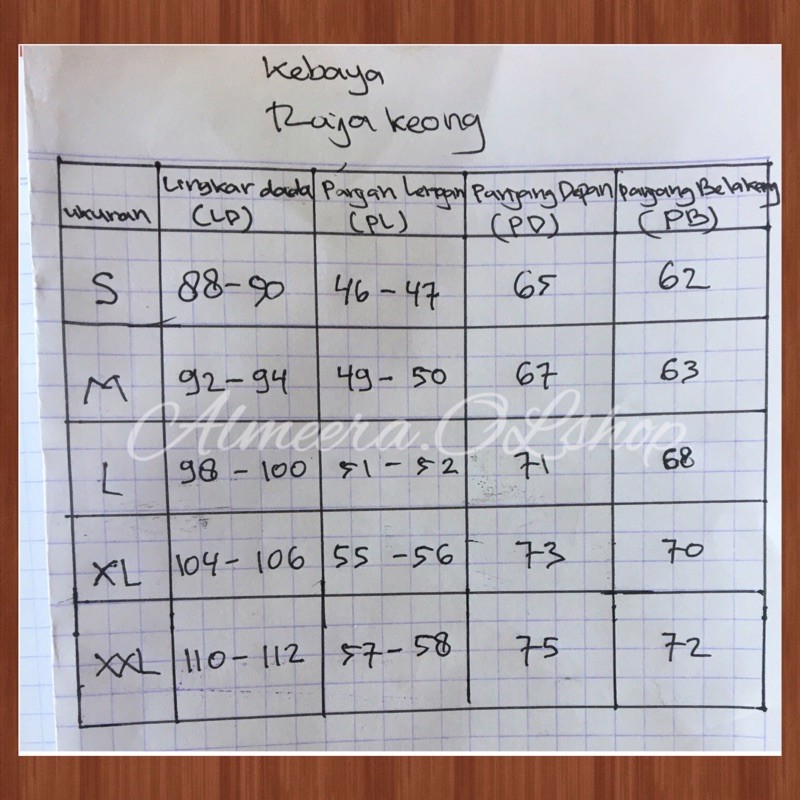 Kebaya
Raja keong
ukuran Lingkar dada (LD) Pangan Lengan (PL) Panjang Depan (PD) Panjang Belakang (PB)
S 88-90 46-47 65 62
M 92-94 49-50 67 63
Almeera.OLshop
L 98-100 51-52 71 68
XL 104-106 55-56 73 70
XXL 110-112 57-58 75 72